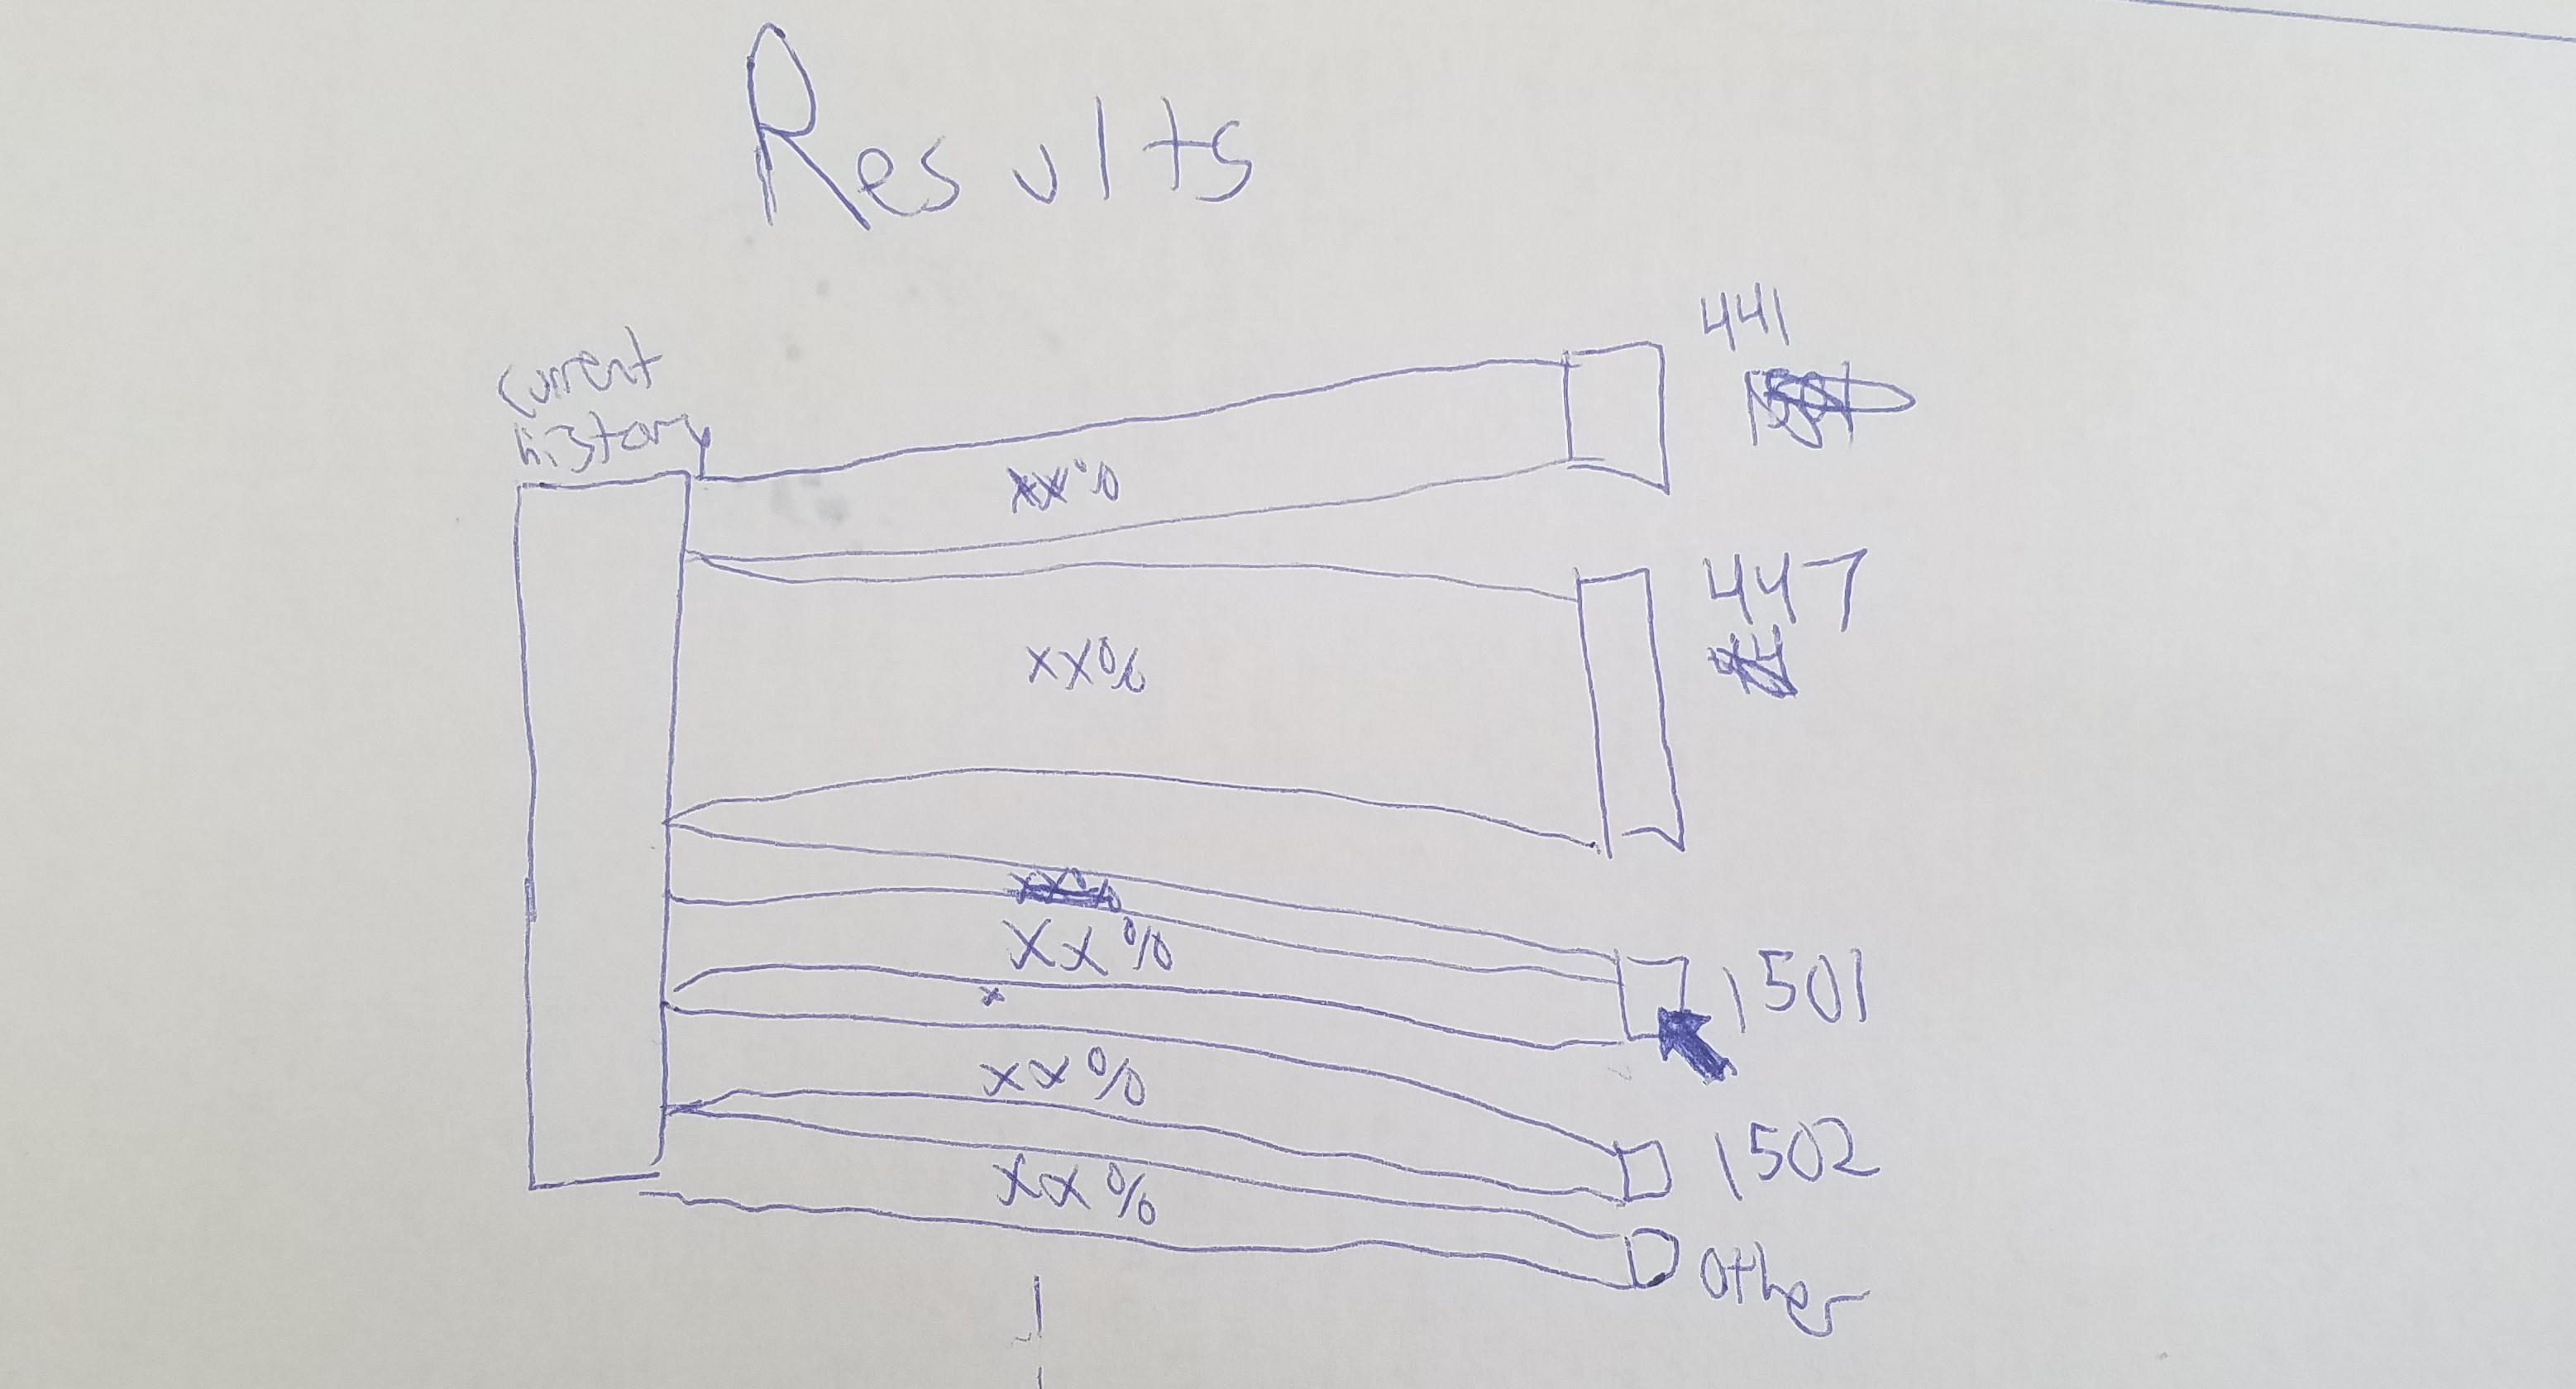 Results
441
current
history
xx%
447
xx%
xx%
1501
x
xx%
1502
xx%
other